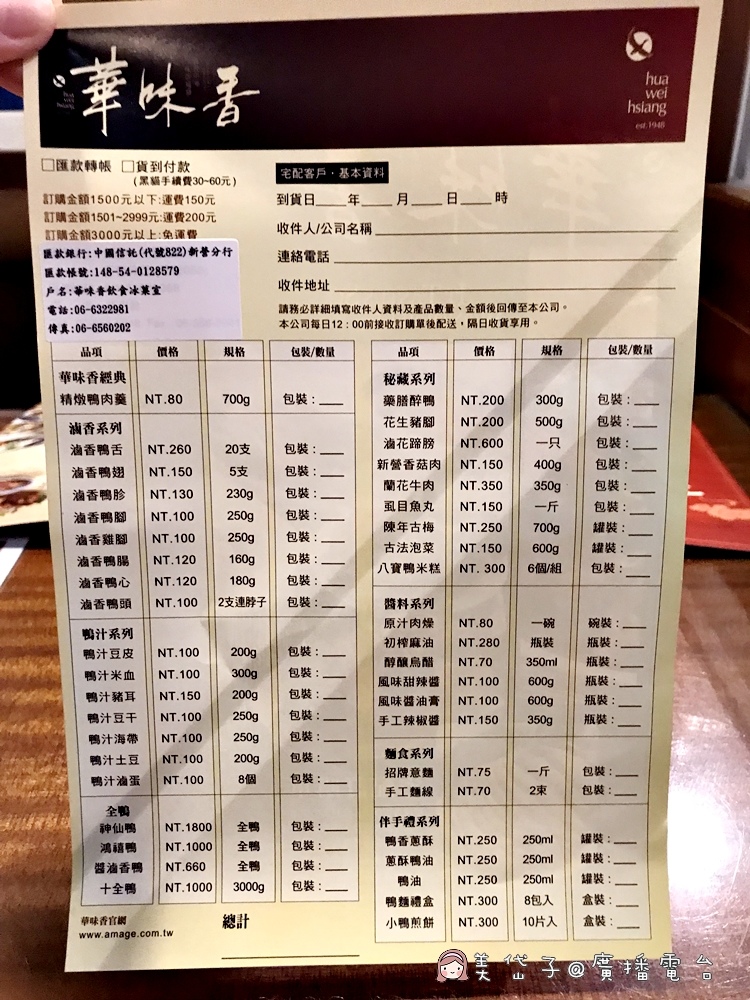 華味香
hua
wei
hsiang
est.1948
□匯款轉帳 □貨到付款
(黑貓手續費30~60元)
訂購金額1500元以下:運費150元
訂購金額1501~2999元:運費200元
訂購金額3000元以上:免運費
匯款銀行:中國信託(代號822)新營分行
匯款帳號:148-54-0128579
戶名:華味香飲食冰菓室
電話:06-6322981
傳真:06-6560202
宅配客戶・基本資料
到貨日___年___月___日___時
收件人/公司名稱
連絡電話
收件地址
請務必詳細填寫收件人資料及產品數量、金額後回傳至本公司。
本公司每日12:00前接收訂購單後配送,隔日收貨享用。
品項 價格 規格 包裝/數量
華味香經典
精燉鴨肉羹 NT.80 700g 包裝:___
滷香系列
滷香鴨舌 NT.260 20支 包裝:___
滷香鴨翅 NT.150 5支 包裝:___
滷香鴨胗 NT.130 230g 包裝:___
滷香鴨腳 NT.100 250g 包裝:___
滷香雞腳 NT.100 250g 包裝:___
滷香鴨腸 NT.120 160g 包裝:___
滷香鴨心 NT.120 180g 包裝:___
滷香鴨頭 NT.100 2支連脖子 包裝:___
鴨汁系列
鴨汁豆皮 NT.100 200g 包裝:___
鴨汁米血 NT.100 300g 包裝:___
鴨汁豬耳 NT.150 200g 包裝:___
鴨汁豆干 NT.100 250g 包裝:___
鴨汁海帶 NT.100 250g 包裝:___
鴨汁土豆 NT.100 200g 包裝:___
鴨汁滷蛋 NT.100 8個 包裝:___
全鴨
神仙鴨 NT.1800 全鴨 包裝:___
鴻禧鴨 NT.1000 全鴨 包裝:___
醬滷香鴨 NT.660 全鴨 包裝:___
十全鴨 NT.1000 3000g 包裝:___
華味香官網
www.amage.com.tw
總計
品項 價格 規格 包裝/數量
秘藏系列
藥膳醉鴨 NT.200 300g 包裝:___
花生豬腳 NT.200 500g 包裝:___
滷花蹄膀 NT.600 一只 包裝:___
新營香菇肉 NT.150 400g 包裝:___
蘭花牛肉 NT.350 350g 包裝:___
虱目魚丸 NT.150 一斤 包裝:___
陳年古梅 NT.250 700g 罐裝:___
古法泡菜 NT.150 600g 罐裝:___
八寶鴨米糕 NT. 300 6個/組 包裝:___
醬料系列
原汁肉燥 NT.80 一碗 碗裝:___
初榨麻油 NT.280 瓶裝 瓶裝:___
醇釀烏醋 NT.70 350ml 瓶裝:___
風味甜辣醬 NT.100 600g 瓶裝:___
風味醬油膏 NT.100 600g 瓶裝:___
手工辣椒醬 NT.150 350g 瓶裝:___
麵食系列
招牌意麵 NT.75 一斤 包裝:___
手工麵線 NT.70 2束 包裝:___
伴手禮系列
鴨香蔥酥 NT.250 250ml 罐裝:___
蔥酥鴨油 NT.250 250ml 罐裝:___
鴨油 NT.250 250ml 罐裝:___
鴨麵禮盒 NT.300 8包入 盒裝:___
小鴨煎餅 NT.300 10片入 盒裝:___
美岱子@廣播電台